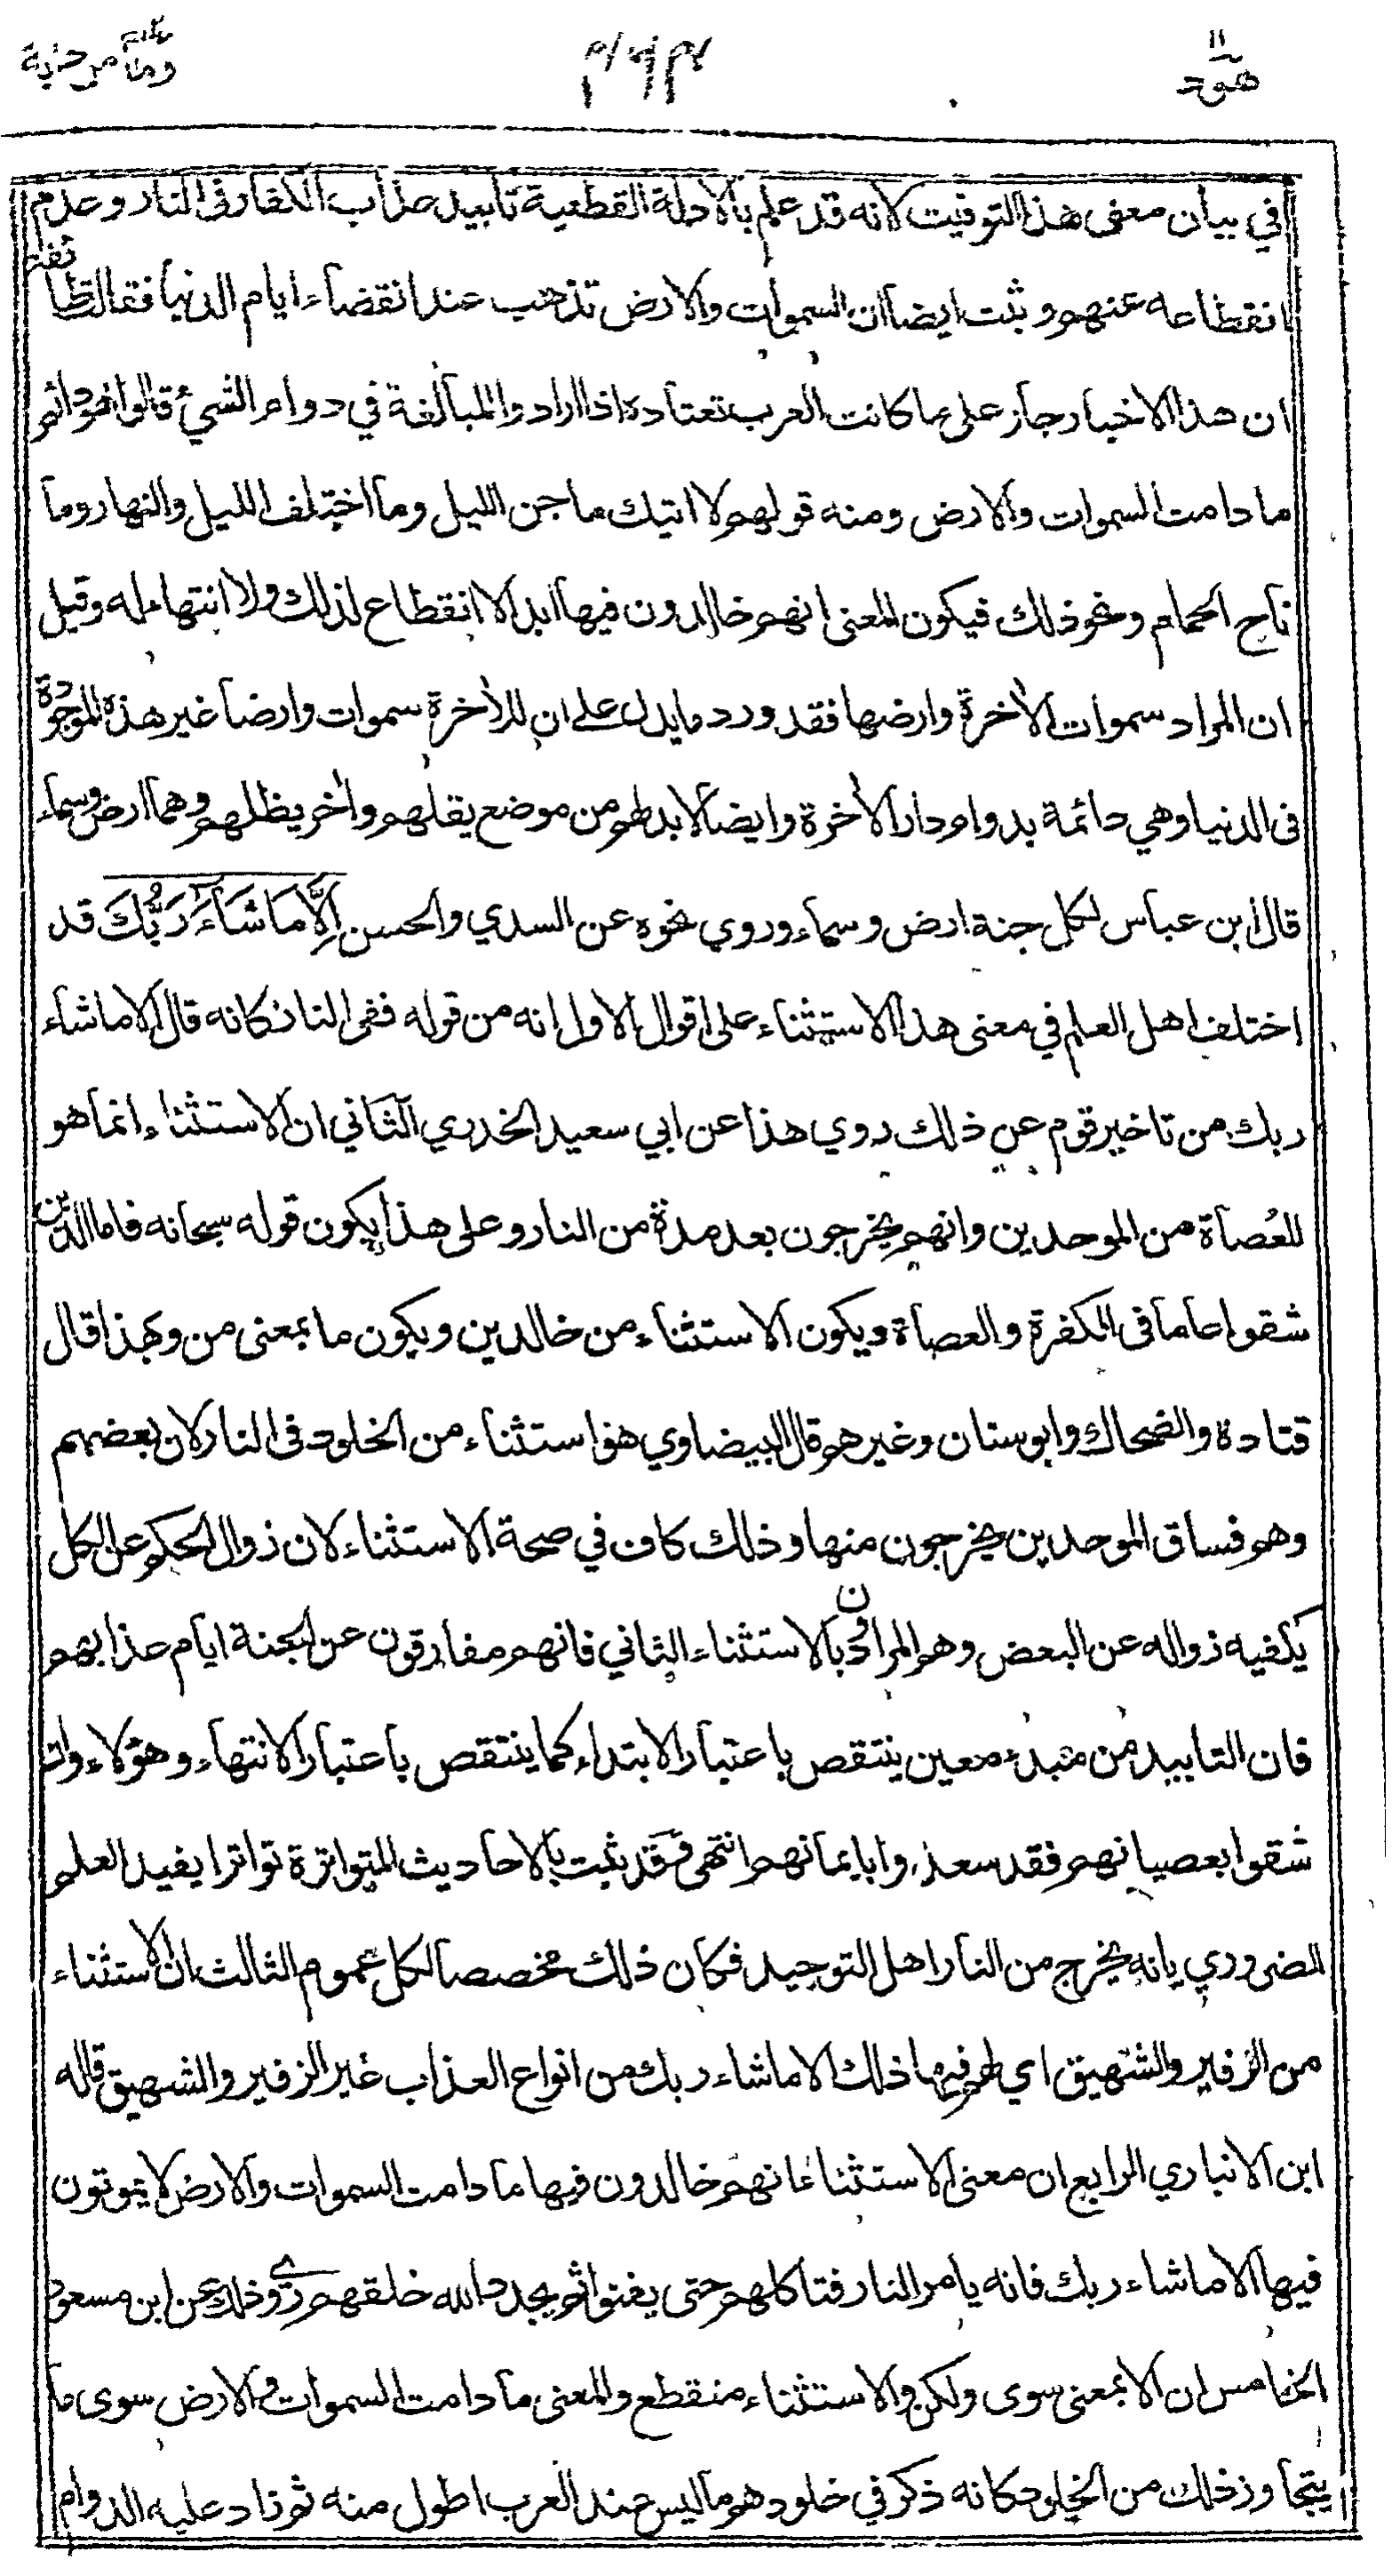 هود ١١
وما من دابة ١٢
في بيان معنى هذا التوقيت لانه قد علم بالادلة القطعية تأبيد عذاب الكفار فى النار وعدم
انقطاعه عنهم وثبت ايضا ان السموات والارض تذهب عند انقضاء ايام الدنيا فقالت طائفة
ان هذا الاخبار جاز على ما كانت العرب تعتاده اذا ارادوا المبالغة في دوام الشيء قالوا هو دائم
ما دامت السموات والارض ومنه قولهم لا اتيك ما جن الليل وما اختلف الليل والنهار وما
ناح الحمام ونحو ذلك فيكون المعنى انهم خالدون فيها ابدا لا انقطاع لذلك ولا انتهاء له وقيل
ان المراد سموات الأخرة وارضها فقد ورد ما يدل على ان للأخرة سموات وارضا غير هذه الموجودة
فى الدنيا وهي دائمة بدوام دار الأخرة وايضا لا بد لهم من موضع يقلهم وأخر يظلهم وهما ارض وسماء
قال ابن عباس لكل جنة ارض وسماء وروي نحوه عن السدي والحسن إِلَّا مَا شَاءَ رَبُّكَ قد
اختلف اهل العلم في معنى هذا الاستثناء على اقوال الاول انه من قوله ففى النار كانه قال الا ما شاء
ربك من تاخير قوم عن ذلك روي هذا عن ابي سعيد الخدري الثاني ان الاستثناء انما هو
للعُصاة من الموحدين وانهم يخرجون بعد مدة من النار وعلى هذا يكون قوله سبحانه فاما الذين
شقوا عاما فى الكفرة والعصاة ويكون الاستثناء من خالدين ويكون ما بمعنى من وبهذا قال
قتادة والضحاك وابو سنان وغيرهم قال البيضاوي هو استثناء من الخلود فى النار لان بعضهم
وهم فساق الموحدين يخرجون منها وذلك كاف في صحة الاستثناء لان زوال الحكم عن الكل
يكفيه زواله عن البعض وهم المرادون بالاستثناء الثاني فانهم مفارقون عن الجنة ايام عذابهم
فان التابيد من مبدء معين ينتقص باعتبار الابتداء كما ينتقص باعتبار الانتهاء وهؤلاء وان
شقوا بعصيانهم فقد سعدوا بايمانهم انتهى وقد ثبت بالاحاديث المتواترة تواترا يفيد العلم
الضروري بانه يخرج من النار اهل التوحيد فكان ذلك مخصصا لكل عموم الثالث ان الاستثناء
من الزفير والشهيق اي لهم فيها ذلك الا ما شاء ربك من انواع العذاب غير الزفير والشهيق قاله
ابن الانباري الرابع ان معنى الاستثناء انهم خالدون فيها ما دامت السموات والارض لا يموتون
فيها الا ما شاء ربك فانه يامر النار فتاكلهم حتى يفنوا ثم يجدد الله خلقهم روي ذلك عن ابن مسعود
الخامس ان الا بمعنى سوى ولكن والاستثناء منقطع والمعنى ما دامت السموات والارض سوى ما
يتجاوز ذلك من الخلود كانه ذكر في خلودهم ما ليس عند العرب اطول منه ثم زاد عليه الدوام